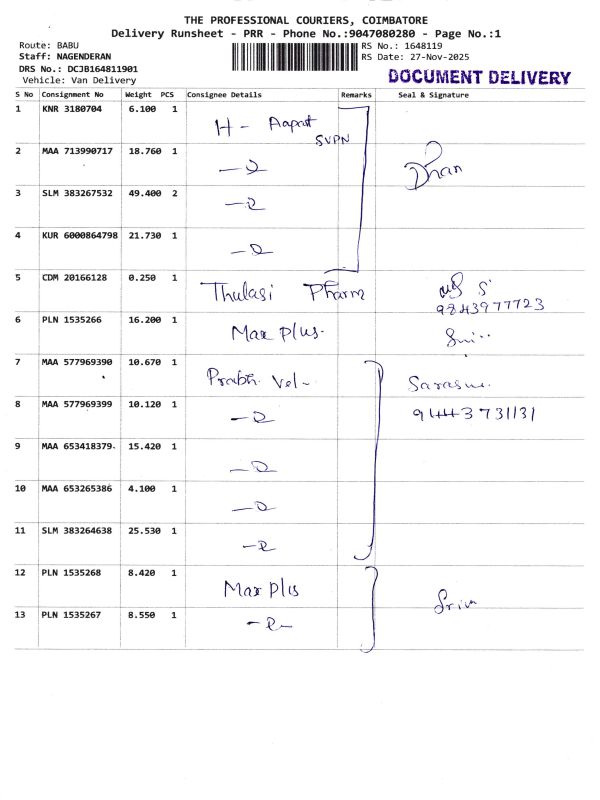 THE PROFESSIONAL COURIERS, COIMBATORE
Delivery Runsheet - PRR - Phone No.:9047080280 - Page No.:1
Route: BABU
RS No.: 1648119
Staff: NAGENDERAN
RS Date: 27-Nov-2025
DRS No.: DCJB164811901
Vehicle: Van Delivery
DOCUMENT DELIVERY
S No Consignment No Weight PCS Consignee Details Remarks Seal & Signature
1 KNR 3180704 6.100 1 H -
SVPN
2 MAA 713990717 18.760 1
Dhan
3 SLM 383267532 49.400 2
4 KUR 6000864798 21.730 1
5 CDM 20166128 0.250 1 Thulasi Pharm
9843977723
6 PLN 1535266 16.200 1 Max Plus.
7 MAA 577969390 10.670 1 Prabh. Vel -
8 MAA 577969399 10.120 1 9443731131
9 MAA 653418379 15.420 1
10 MAA 653265386 4.100 1
11 SLM 383264638 25.530 1
12 PLN 1535268 8.420 1 Max Plus
13 PLN 1535267 8.550 1